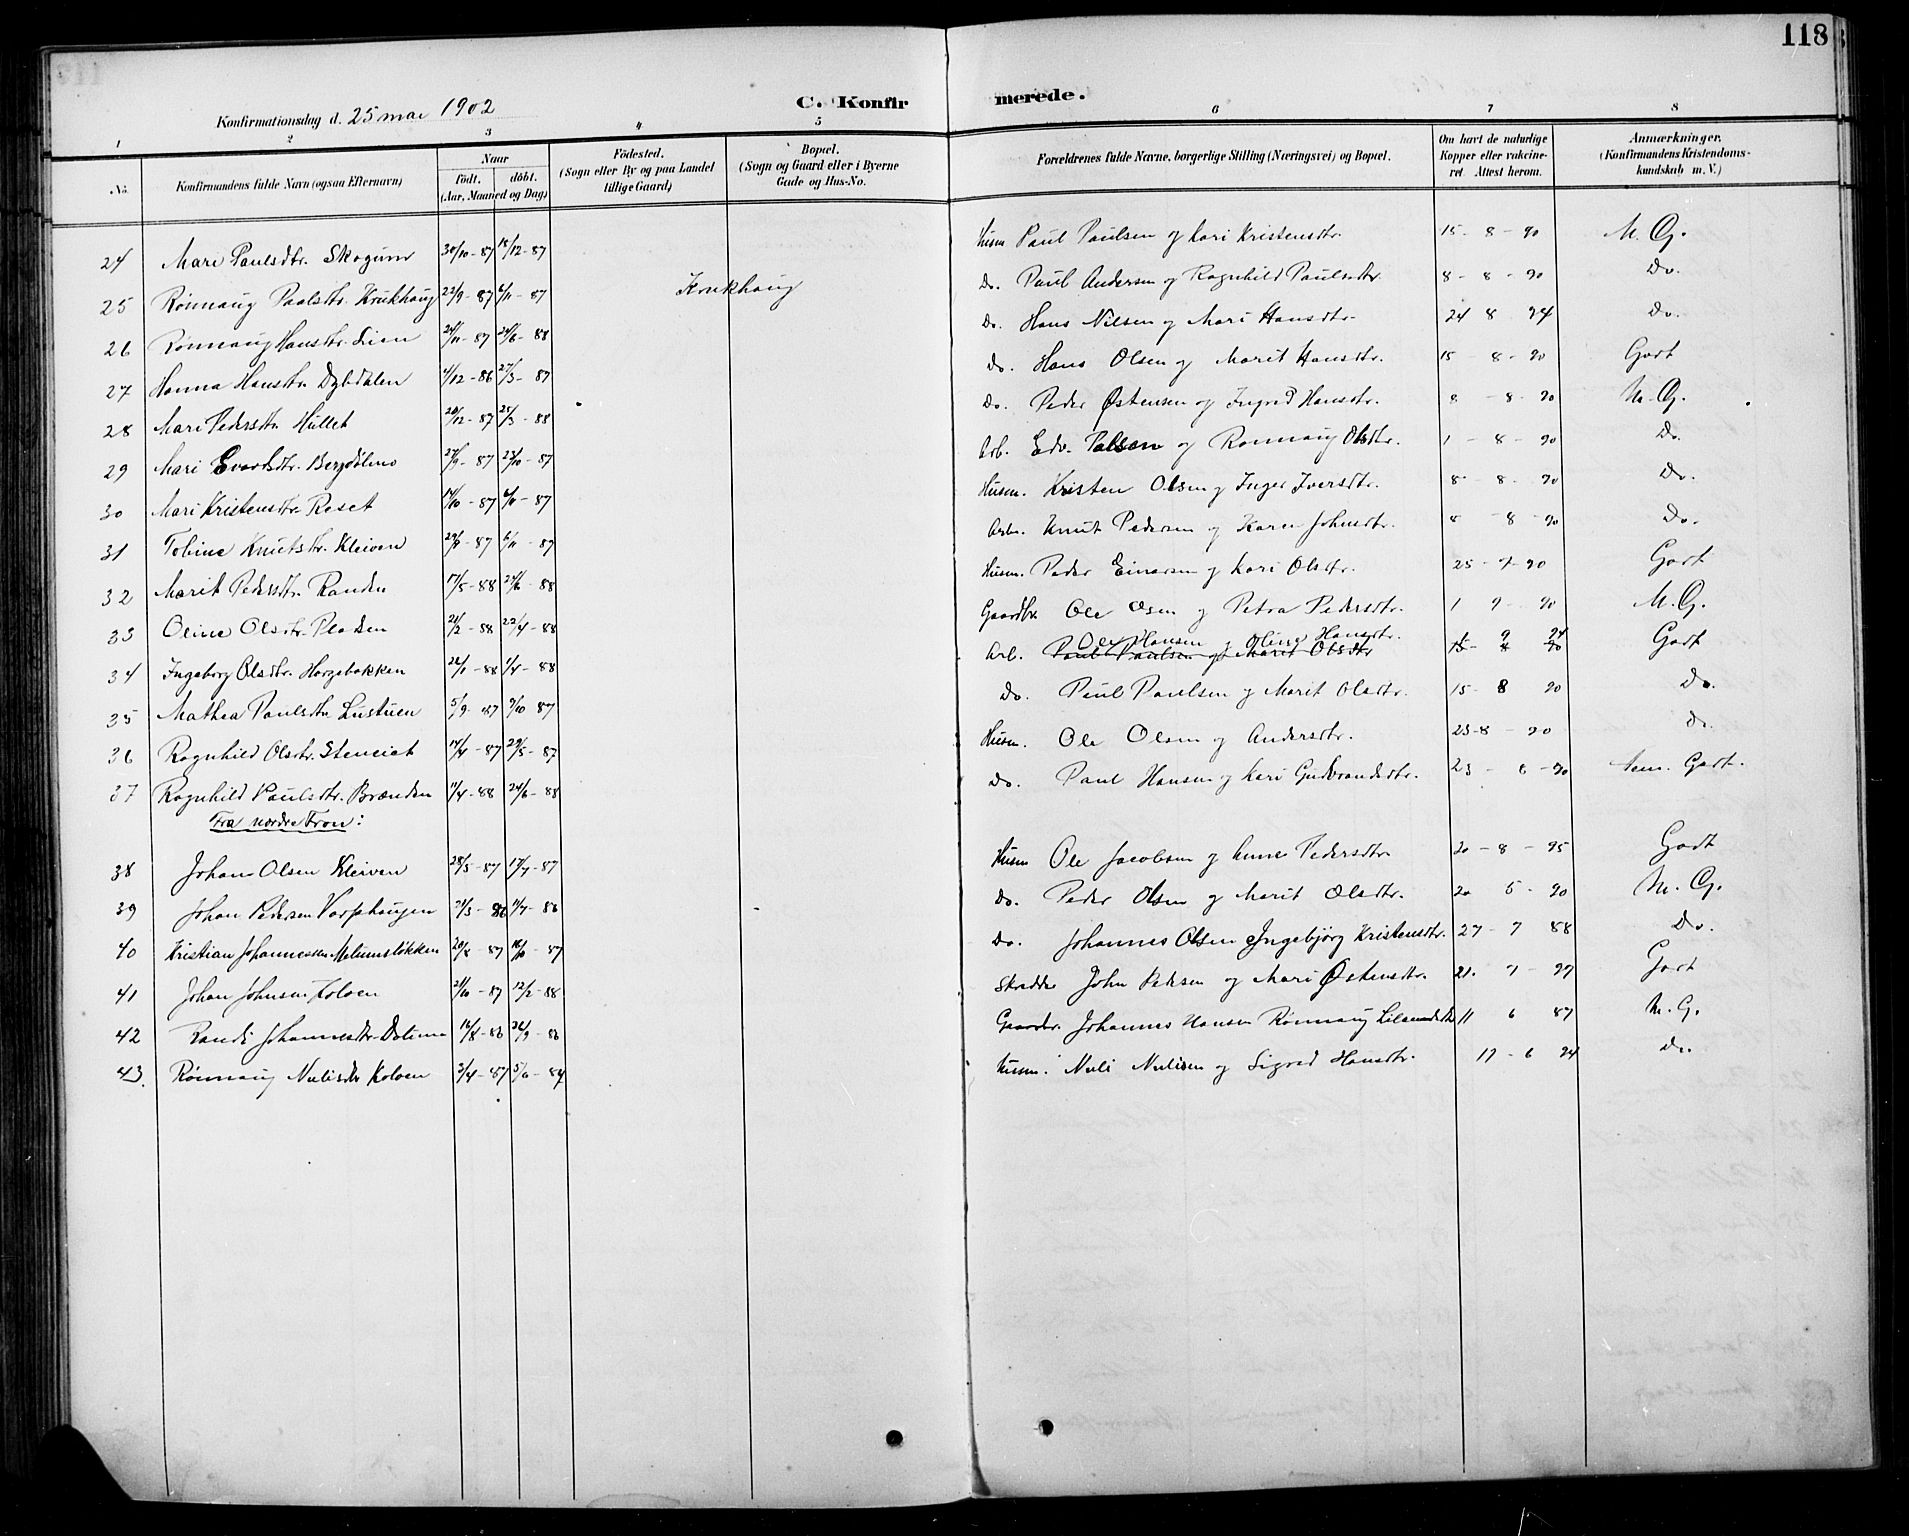 118
Konfirmationsdag d. 25 mai 1902
C. Konfirmerede.
1 2 3 4 5 6 7 8
No. Konfirmandens fulde Navn (ogsaa Efternavn) Naar födt. döbt. (Aar, Maaned og Dag) Födested. (Sogn eller By og paa Landet tillige Gaard) Bopæl. (Sogn og Gaard eller i Byerne Gade og Hus-No. Forældrenes fulde Navne, borgerlige Stilling (Næringsvei) og Bopæl. Om havt de naturlige Kopper eller vakcineret. Attest herom. Anmærkninger. (Konfirmandens Kristendomskundskab m. V.)
24 Mari Paulsdtr. Skogum 30/10-87 18/12-87 Husm Paul Paulsen og Kari Kristensdtr. 15-8-90 M.G.
25 Rønnaug Paalsdtr. Krukhaug 22/9-87 6/11-87 Krukhaug Do. Paul Andersen og Ragnhild Paulsdtr 8-8-90 Do.
26 Rønnaug Hansdtr. Lien 24/11-87 24/6-88 Do. Hans Nilsen og Mari Hansdtr. 24 8-94 Do.
27 Hanna Hansdtr Dybdalen 4/12-86 27/3-87 Do. Hans Olsen og Marit Hansdtr. 15-8-90 Godt
28 Mari Pedersdtr Hullet 20/12-87 25/3-88 Do. Peder Østensen og Ingrid Hansdtr. 8-8-90 M.G.
29 Mari Evartsdtr. Bergdølmo 27/9-87 23/10-87 Arb. Edv. Paulsen og Rønnaug Olsdtr. 1-8-90 Do.
30 Mari Kristensdtr. Roset 14/10-87 6/11-87 Husm. Kristen Olsen og Inger Iversdtr. 8-8-90 Do.
31 Toline Knutsdtr. Kleiven 29/8-87 6/11-87 Arb. Knut Pedersen og Karen Johnsdtr. 8-8-90 Do.
32 Marit Pedersdtr. Randen 17/5-88 24/6-88 Husm. Peder Einarsen og Kari Olsdtr. 25-7-90 Godt
33 Oline Olsdtr. Pladsen 21/2-88 22/4-88 Gaardbr Ole Olsen og Petra Pedersdtr. 1 9-90 M.G.
34 Ingeborg Olsdtr. Horgebakken 22/1-88 1/4-88 Arb. Ole Hansen og Oline Hansdtr. 1-9 94 Godt
Paul Paulsen og Marit Olsdtr 15-8 90
35 Mathea Paulsdtr Lustuen 5/9-87 9/10 87 Do. Paul Paulsen og Marit Olsdtr. 15-8 90 Do.
36 Ragnhild Olsdtr. 14/4-87 29/5-87 Husm. Ole Olsen og Andersdtr. 23-8-90 Do.
37 Ragnhild Paulsdtr. Brænden 11/4-88 24/6-88 Do. Paul Hansen og Kari Gudbrandsdtr. 23-8-90 Godt.
Fra nordre Fron:
38 Johan Olsen Kleiven 28/5-87 17/7-87 Husm Ole Jacobsen og Anne Pedersdtr 20-8-95 Godt
39 Johan Pedersen Vorphaugen 21/3-86 11/7-86 Do. Peder Olsen og Marit Olsdtr. 20 5-90 M.G.
40 Kristian Johannessen Melumsløkken 20/8-87 16/10-87 Do. Johannes Olsen Ingebjørg Kristensdtr. 27-7 88 Do.
41 Johan Johnsen Koloen 21/10-87 12/2-88 Skrædder John Pedersen og Mari Østensdtr. 21-7-97 Godt
42 Randi Johannesdtr 16/8-86 26/9-86 Gaardbr. Johannes Hansen Rønnaug 11 6 87 M.G.
43. Rønnaug Nielsdtr Koloen 3/4-87 5/6-87 Husm. Niels Nielsen og Sigrid Hansdtr. 17-6 94 Do.